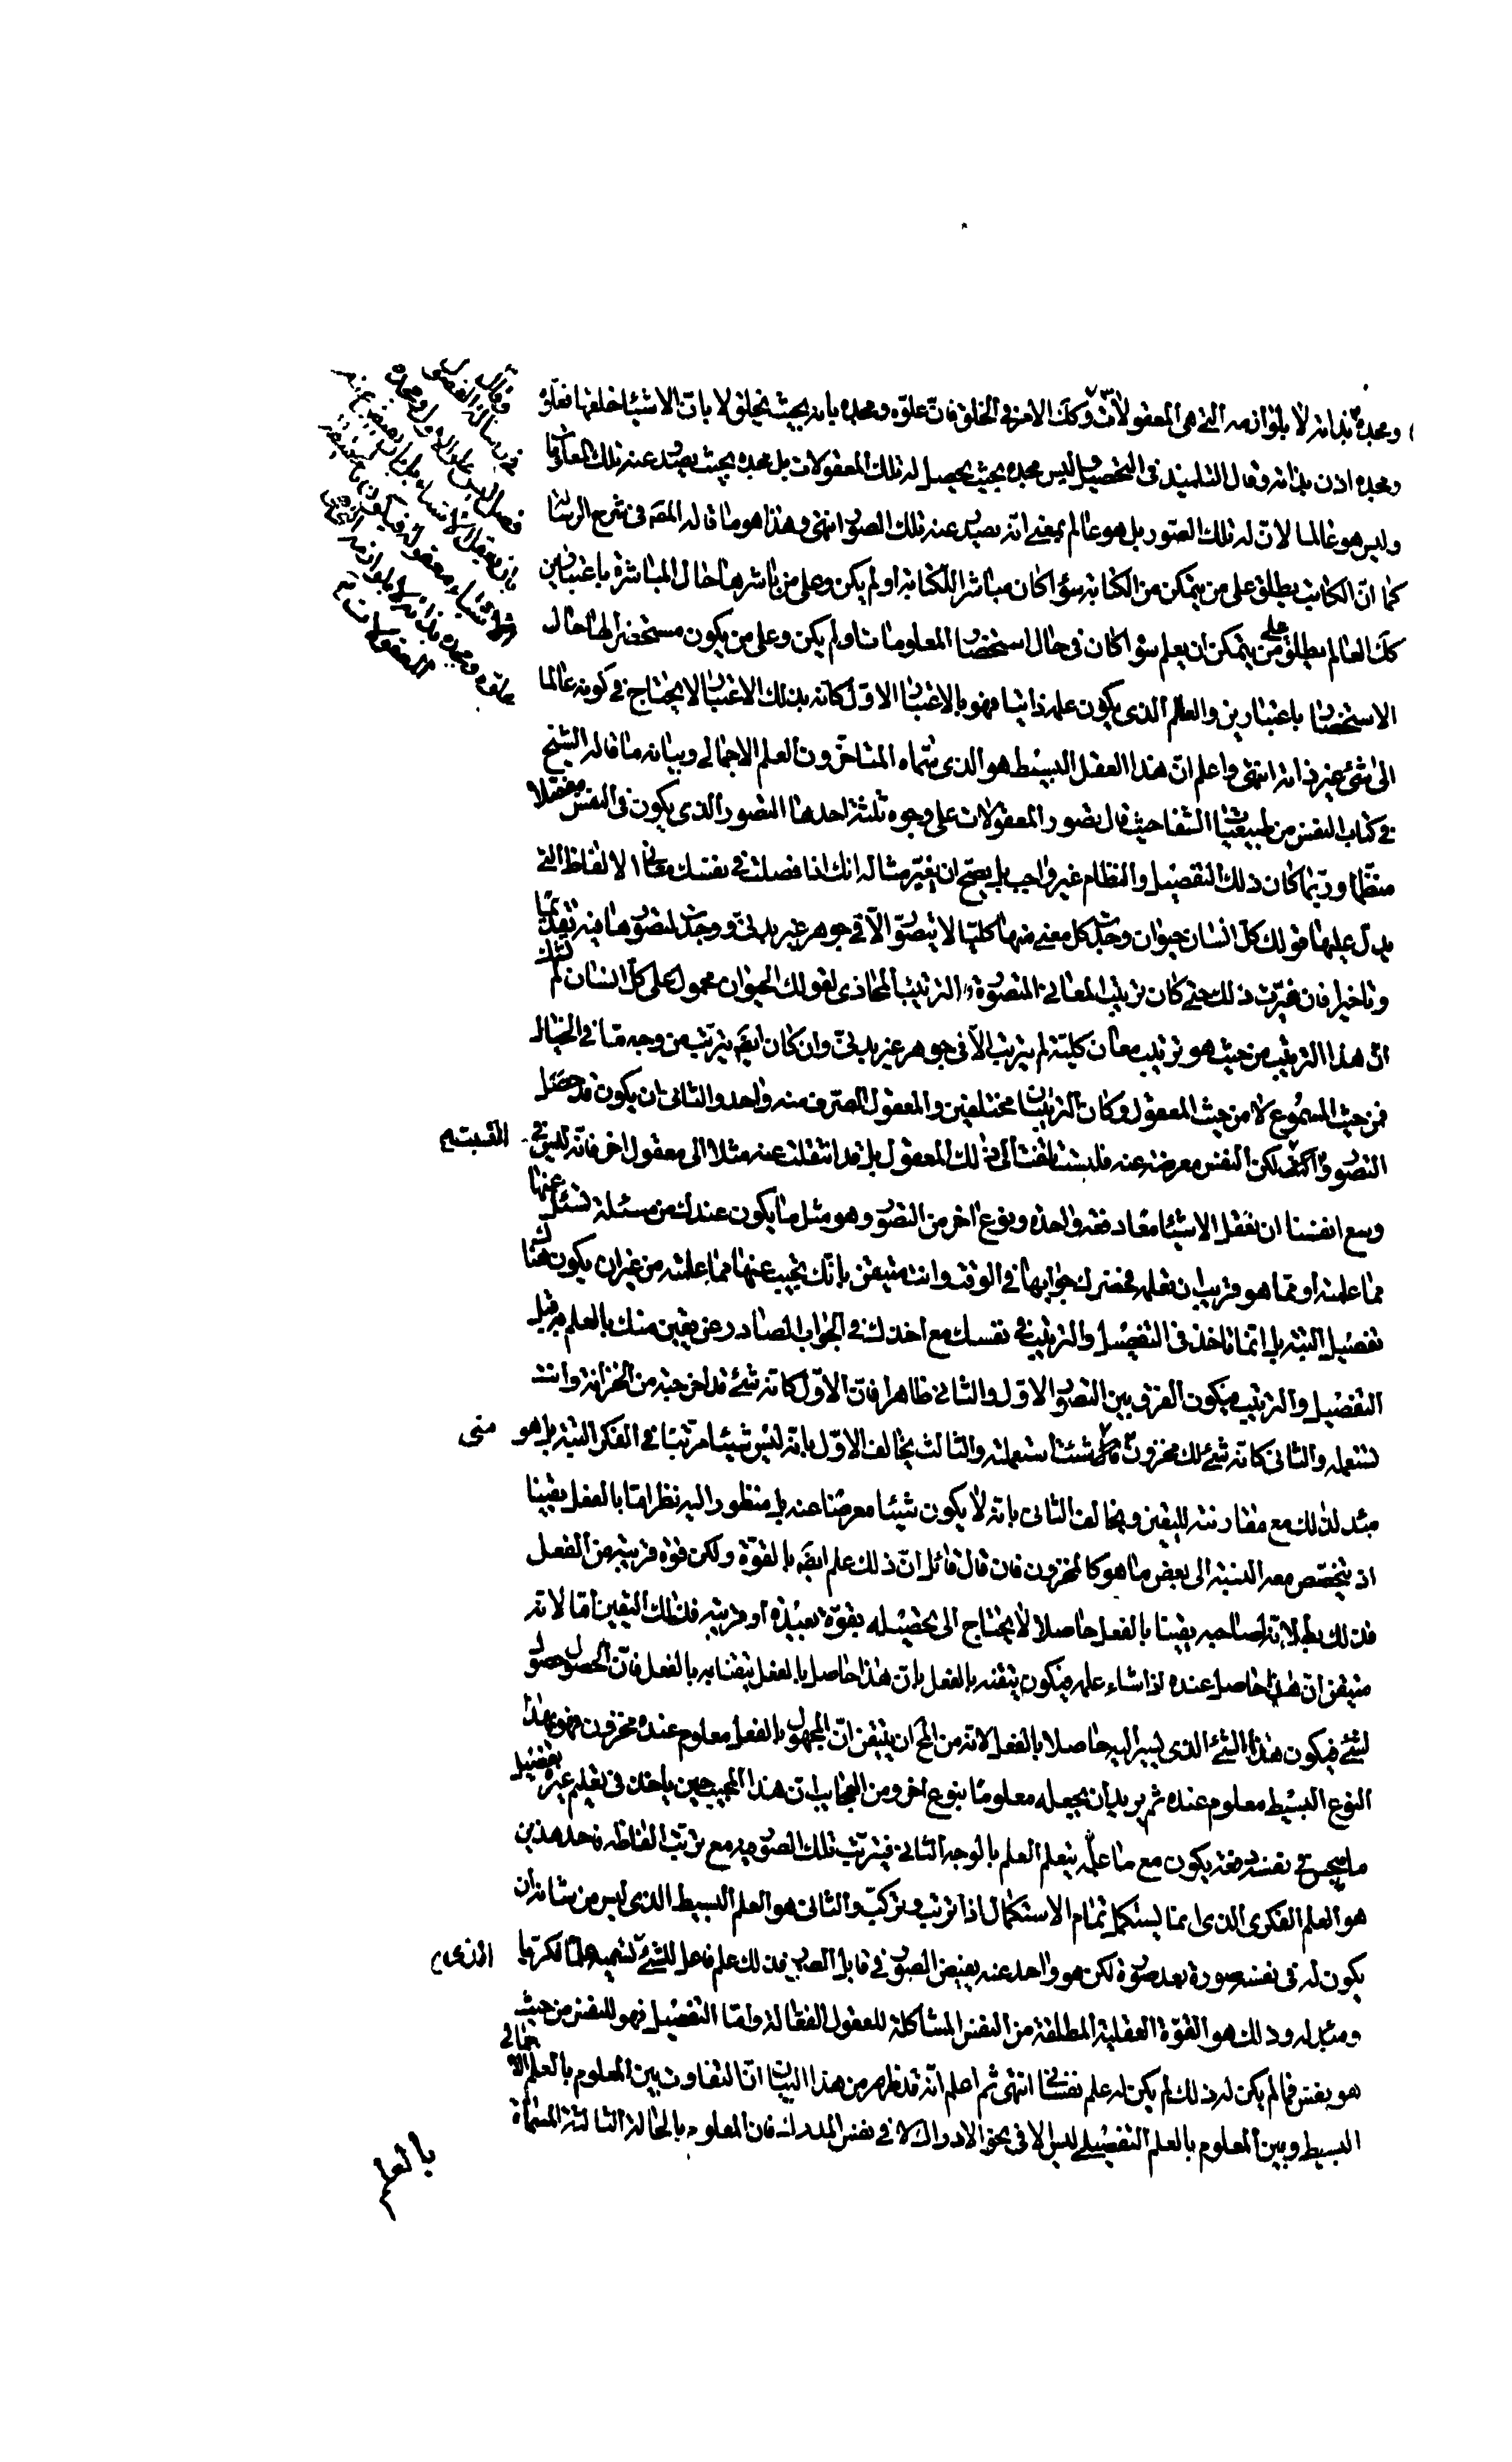 ومجده بذاته لا بلوازمه التى هى المعقولات وكك الامر فى الخلق فان علوه ومجده بانه بحيث يخلق لا بان الاشيا خلقها فعلوه
ومجده اذن بذاته وقال التلميذ فى التحصيل وليس مجده بحيث يحصل له تلك المعقولات بل مجده بحيث يصدر عنه تلك المعقولات
وليس هو عالما لان له تلك الصور بل هو عالم بمعنى انه يصدر عنه تلك الصور انتهى وهذا هو ما قاله المصه فى شرح الرسالة
كما ان الكاتب يطلق على من يتمكن من الكتابة سواء كان مباشرا للكتابة او لم يكن وعلى من باشرها حال المباشرة باعتبارين
كك العالم يطلق على من يتمكن ان يعلم سواء كان فى حال استحضار المعلومات او لم يكن وعلى من يكون مستحضرا لها حال
الاستحضار باعتبارين والعالم الذى يكون علمه ذاتيا فهو بالاعتبار الاول كانه بذلك الاعتبار لا يحتاج فى كونه عالما
الى شئ غير ذاته انتهى واعلم ان هذا العقل البسيط هو الذى سماه المتاخرون العلم الاجمالى وبيانه ما قاله الشيخ
فى كتاب النفس من طبيعيات الشفا حيث قال تصور المعقولات على وجوه ثلثة احدها التصور الذى يكون فى النفس مفصلا
منظما وربما كان ذلك التفصيل والنظام غير واجب بل يصح ان يغير مثاله انك اذا فصلت فى نفسك معانى الالفاظ التى
يدل عليها قولك كل انسان حيوان وجدت كل معنى منها كليا لا يتصور الا فى جوهر غير بدنى ووجدت لتصورها فيه تقديما
وتاخيرا فان غيرت ذلك حتى كان ترتيب المعانى المتصورة الترتيب المحاذى لقولك الحيوان محمول على كل انسان لم تشك
ان هذا الترتيب من حيث هو ترتيب معان كلية لم يترتب الا فى جوهر غير بدنى وان كان ايضه يترتب من وجه ما فى الخيال
فمن حيث المسموع لا من حيث المعقول وكان الترتيبان مختلفين والمعقول الصرف منه واحد والثانى ان يكون قد حصل
التصور واكتسب لكن النفس معرضة عنه فليست تلتفت الى ذلك المعقول بل قد انتقلت عنه مثلا الى معقول اخر فانه ليس فى
وسع انفسنا ان نعقل الاشيا معا دفعة واحدة ونوع اخر من التصور وهو مثل ما يكون عندك من مسئلة تسئل عنها
مما علمته او مما هو قريب ان تعلمه فحضرك جوابها فى الوقت وانت متيقن بانك تجيب عنها مما علمته من غير ان يكون هناك
تفصيل البتة بل انما تاخذ فى التفصيل والترتيب فى نفسك مع اخذك فى الجواب الصادر عن يقين منك بالعلم به قبل
التفصيل والترتيب فيكون الفرق بين التصور الاول والثانى ظاهرا فان الاول كانه شئ قد اخرجته من الخزانة وانت
تستعمله والثانى كانه شئ لك مخزون متى شئت استعملته والثالث يخالف الاول بانه ليس شيئا مرتبا فى الفكر البتة بل هو
مبدء لذلك مع مقارنته لليقين ويخالف الثانى بانه لا يكون شيئا معرضا عنه بل منظورا اليه نظرا ما بالفعل يقينا
اذ يتخصص معه النسبة الى بعض ما هو كالمخزون فان قال قائل ان ذلك علم ايضه بالقوة ولكن قوة قريبة من الفعل
فذلك بط لان لصاحبه يقينا بالفعل حاصلا لا يحتاج الى تحصيله بقوة بعيدة او قريبة فذلك اليقين اما لانه
متيقن ان هذا حاصل عنده اذا شاء علمه فيكون تيقنه بالفعل بان هذا حاصل بالفعل تيقنا به بالفعل فان الحصول حصول
لشئ فيكون هذا الشئ الذى يشير اليه حاصلا بالفعل لانه من المح ان يتيقن ان المجهول بالفعل معلوم عنده مخزون فهو بهذا
النوع البسيط معلوم عنده ثم يريد ان يجعله معلوما بنوع اخر ومن العجايب ان هذا المجيب حين ياخذ فى تعليم غيره تفصيل
ما هجس فى نفسه دفعة يكون مع ما علمه يتعلم العلم بالوجه الثانى فيترتب تلك الصور فيه مع ترتب الفاظه فاحد هذين
هو العلم الفكرى الذى انما يستكمل تمام الاستكمال اذا ترتب وتركب والثانى هو العلم البسيط الذى ليس من شانه ان
يكون له فى نفسه صورة بعد صورة لكن هو واحد عنه يفيض الصور فى قابل الصور فذلك علم فاعل للشئ نسميه علما فكريا الذى
ومبدء له وذلك هو القوة العقلية المطلقة من النفس المشاكلة للعقول الفعالة واما التفصيل فهو للنفس من حيث
هو نفس فما لم يكن له ذلك لم يكن له علم نفسانى انتهى ثم اعلم انه قد ظهر من هذا البيان ان التفاوت بين المعلوم بالعلم الاجمالى
البسيط وبين المعلوم بالعلم التفصيلى ليس الا فى نحو الادراك لا فى نفس المدرك فان المعلوم بالحالة الثالثة المسماة
بالعلم